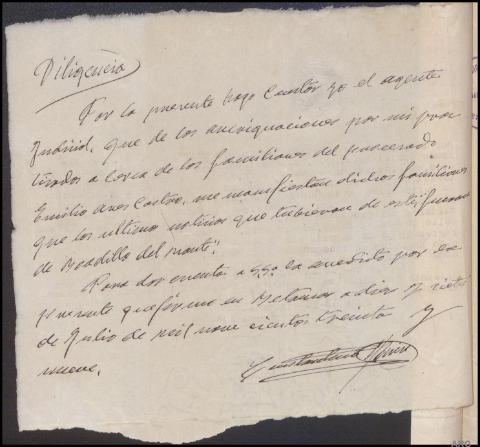 Diligencia
Por la presente hago constar yo el agente
Judicial, que de las averiguaciones por mi prac
ticadas a cerca de los familiares del procesado
Emilio Ares Castro, me manifiestan dichos familiares
que las ultimas noticias que tubieran de este, fueran
de Boadilla del Monte".
Para dar cuenta a SSª la acredito por la
presente que firmo en Betanzos a diez y siete
de Julio de mil nove cientos treinta y
nueve.
ARG